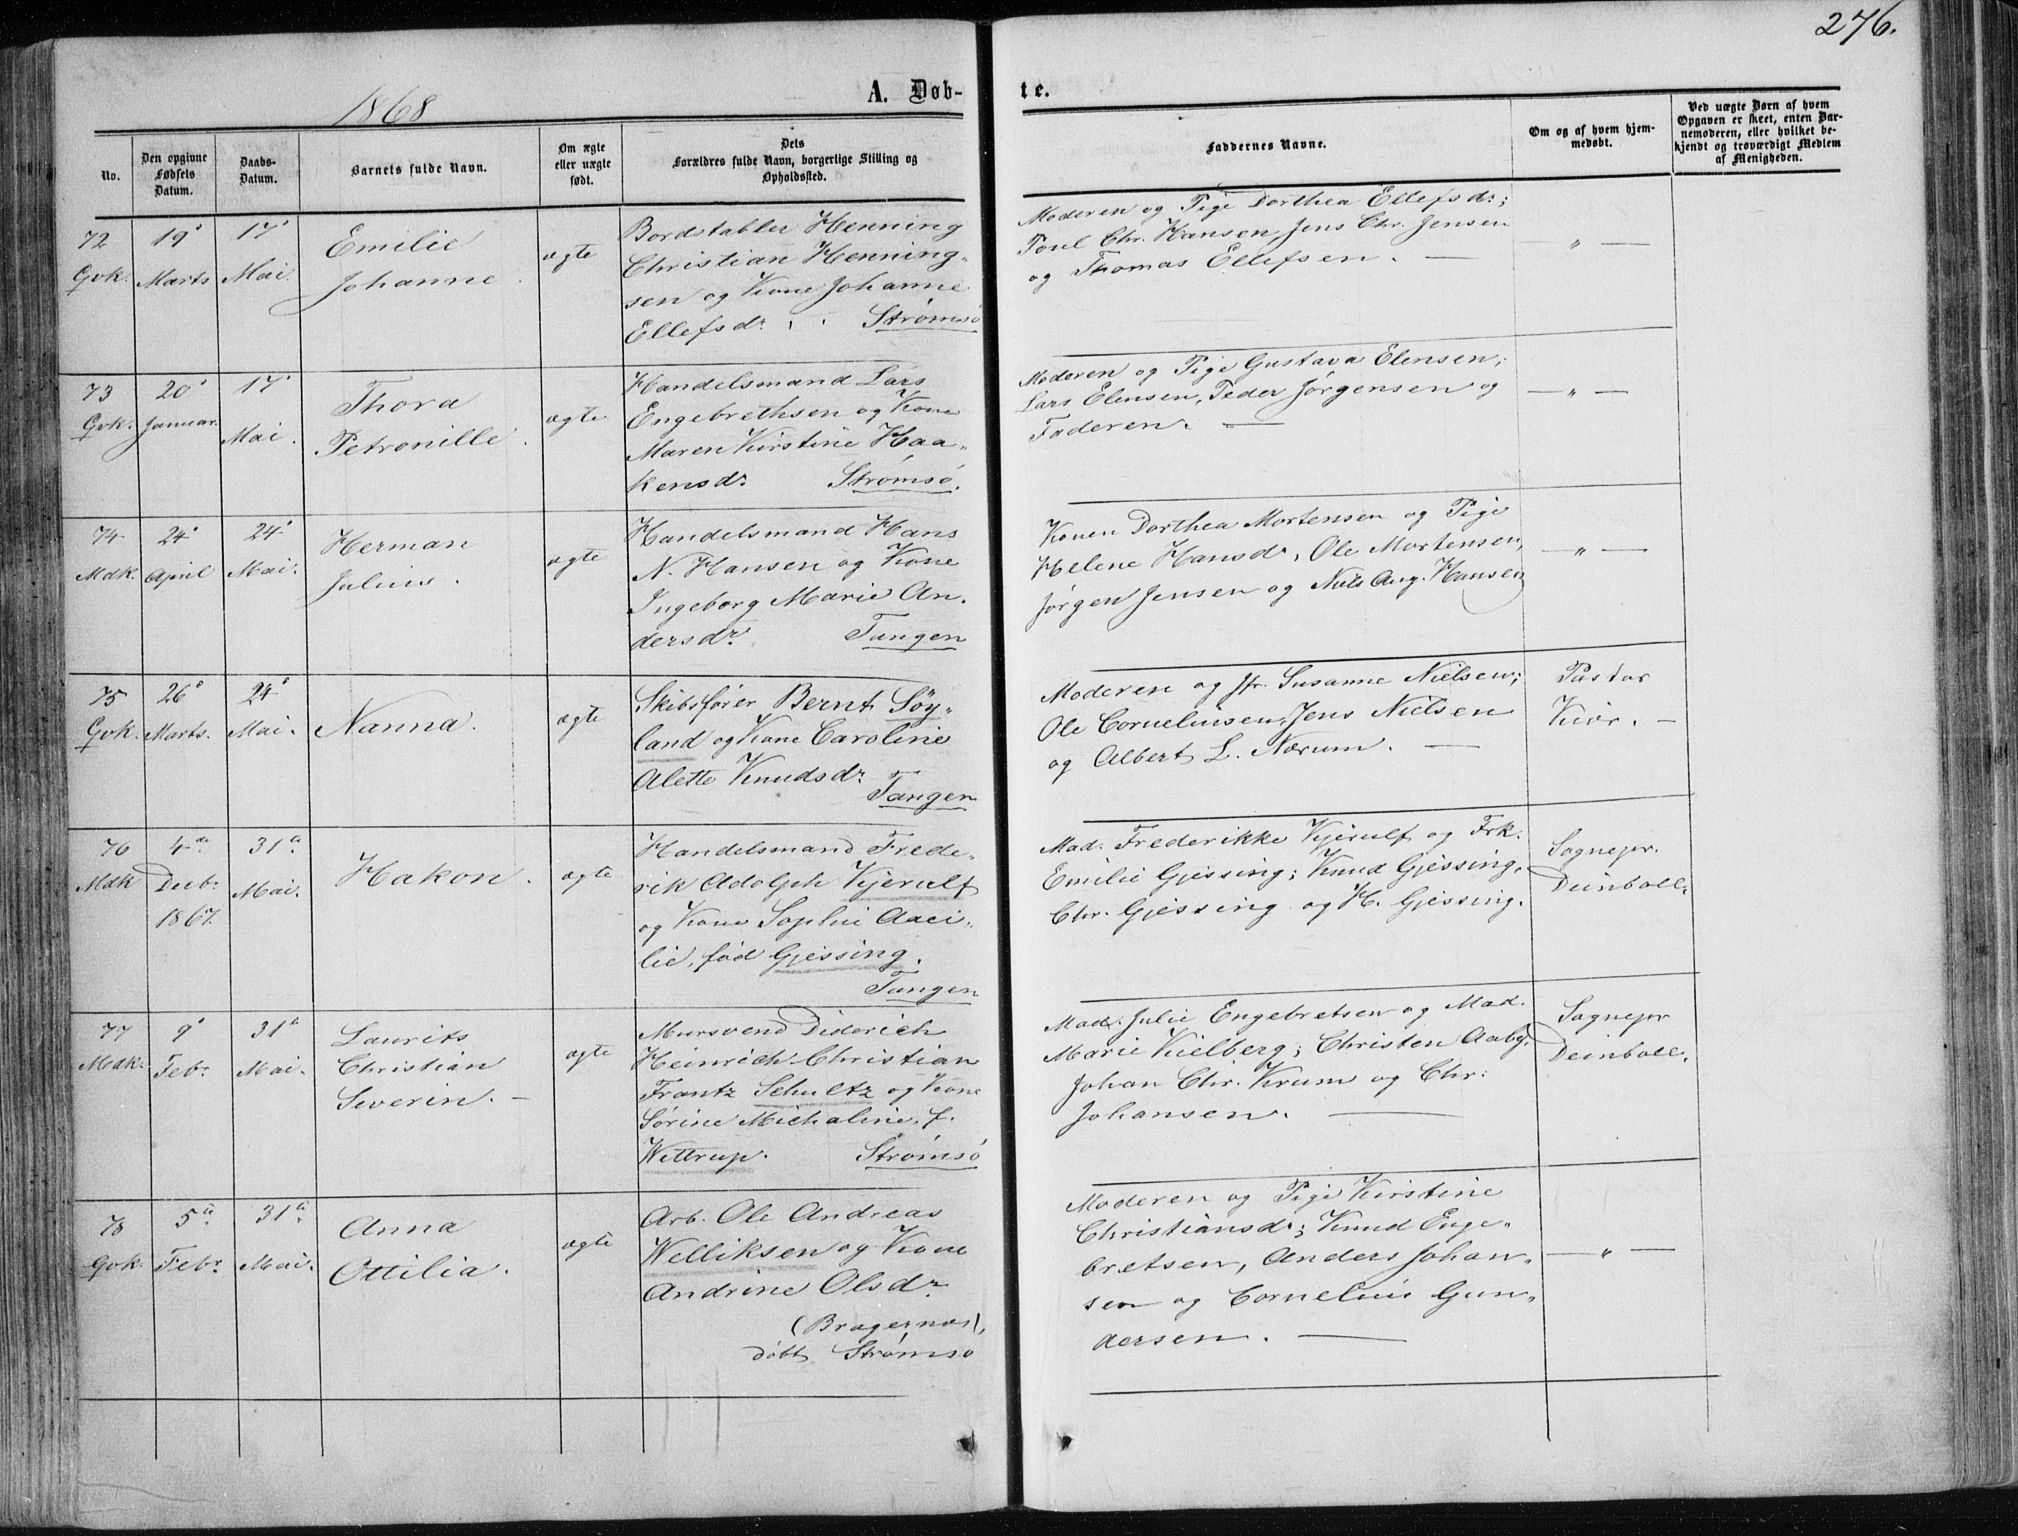 276.
1868
A. Døb-
te.
No.
Den opgivne
Fødsels
Datum.
Daabs-
Datum.
Barnets fulde Navn.
Om ægte
eller uægte
født.
Dets
Forældres fulde Navn, borgerlige Stilling og
Opholdssted.
Faddernes Navne.
Om og af hvem hjem-
medøbt.
Ved uægte Børn af hvem
Opgaven er skeet, enten Bar-
nemoderen, eller hvilket be-
kjendt og troværdigt Medlem
af Menigheden.
72
Qvk.
19'
Marts
17'
Mai.
Emilie
Johanne.
ægte
Henning
Christian Henning-
sen og Kone Johanne
Ellefsdr. Strømsø
Moderen og Pige Dorthea Ellefsdr;
Poul Chr. Hansen, Jens Chr. Jensen
og Thomas Ellefsen. —
" —
73
Qvk.
20'
Januar.
17'
Mai.
Thora
Petronille.
ægte
Handelsmand Lars
Engebrethsen og Kone
Maren Kirstine Haa-
kensdr. Strømsø.
Moderen og Pige Gustava Elensen;
Lars Elensen, Peder Jørgensen og
Faderen. —
— " —
74
Mdk.
24'
April
24'
Mai.
Herman
Julius.
ægte
Handelsmand Hans
N. Hansen og Kone
Ingeborg Marie An-
dersdr. Tangen
Konen Dorthea Mortensen og Pige
Helene Hansdr, Ole Mortensen,
Jørgen Jensen og Nils Aug. Hansen
— " —
75
Qvk.
26'
Marts.
24'
Mai.
Nanna.
ægte
Skibsfører Bernt Söy-
land og Kone Caroline
Alette Knudsdr.
Tangen
Moderen og Jfr. Susanne Nielsen;
Ole Corneliusen, Jens Nielsen
og Albert L. Nærum. —
Pastor
Kiær. —
76
Mdk
4de
Decbr.
1867.
31te
Mai.
Hakon.
ægte
Handelsmand Frede-
rik Adolph Kjerulf
og Kone Sophie
lie, fød Gjessing.
Tangen
Mad. Frederikke Kjerulf og Frk.
Emilie Gjessing; Knud Gjessing,
Chr. Gjessing og H. Gjessing.
Sognepr.
Deinboll.
77
Mdk.
9'
Febr.
31te
Mai.
Laurits
Christian
Severin. —
ægte
Mursvend Diderich
Heinrich Christian
Frantz Schultz og Kone
Sörine Michaline, f.
Wettrup. Strømsø
Mad. Julie Engebretsen og Mad.
Marie Kielberg; Christen Aaby,
Johan Chr. Krum og Chr:
Johansen. —
Sognepr
Deinboll.
78
Qvk.
5te
Febr.
31te
Mai.
Anna
Ottilia.
ægte
Arb. Ole Andreas
Welliksen og Kone
Andrine Olsdr.
(Bragernæs),
döbt Strømsø
Moderen og Pige Kirstine
Christiansdr; Knud Enge-
bretsen, Anders Johan-
sen og Cornelius Gun-
dersen. —
— " —